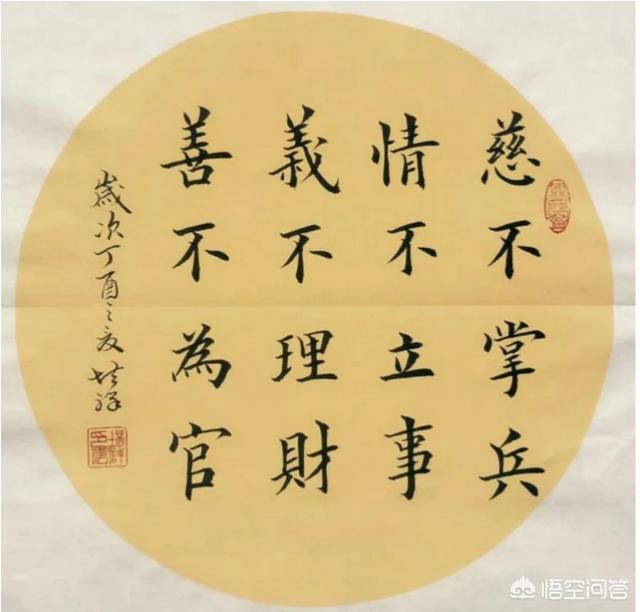 慈不掌兵
情不立事
義不理財
善不為官
歲次丁酉之夏 培祥
悟空问答